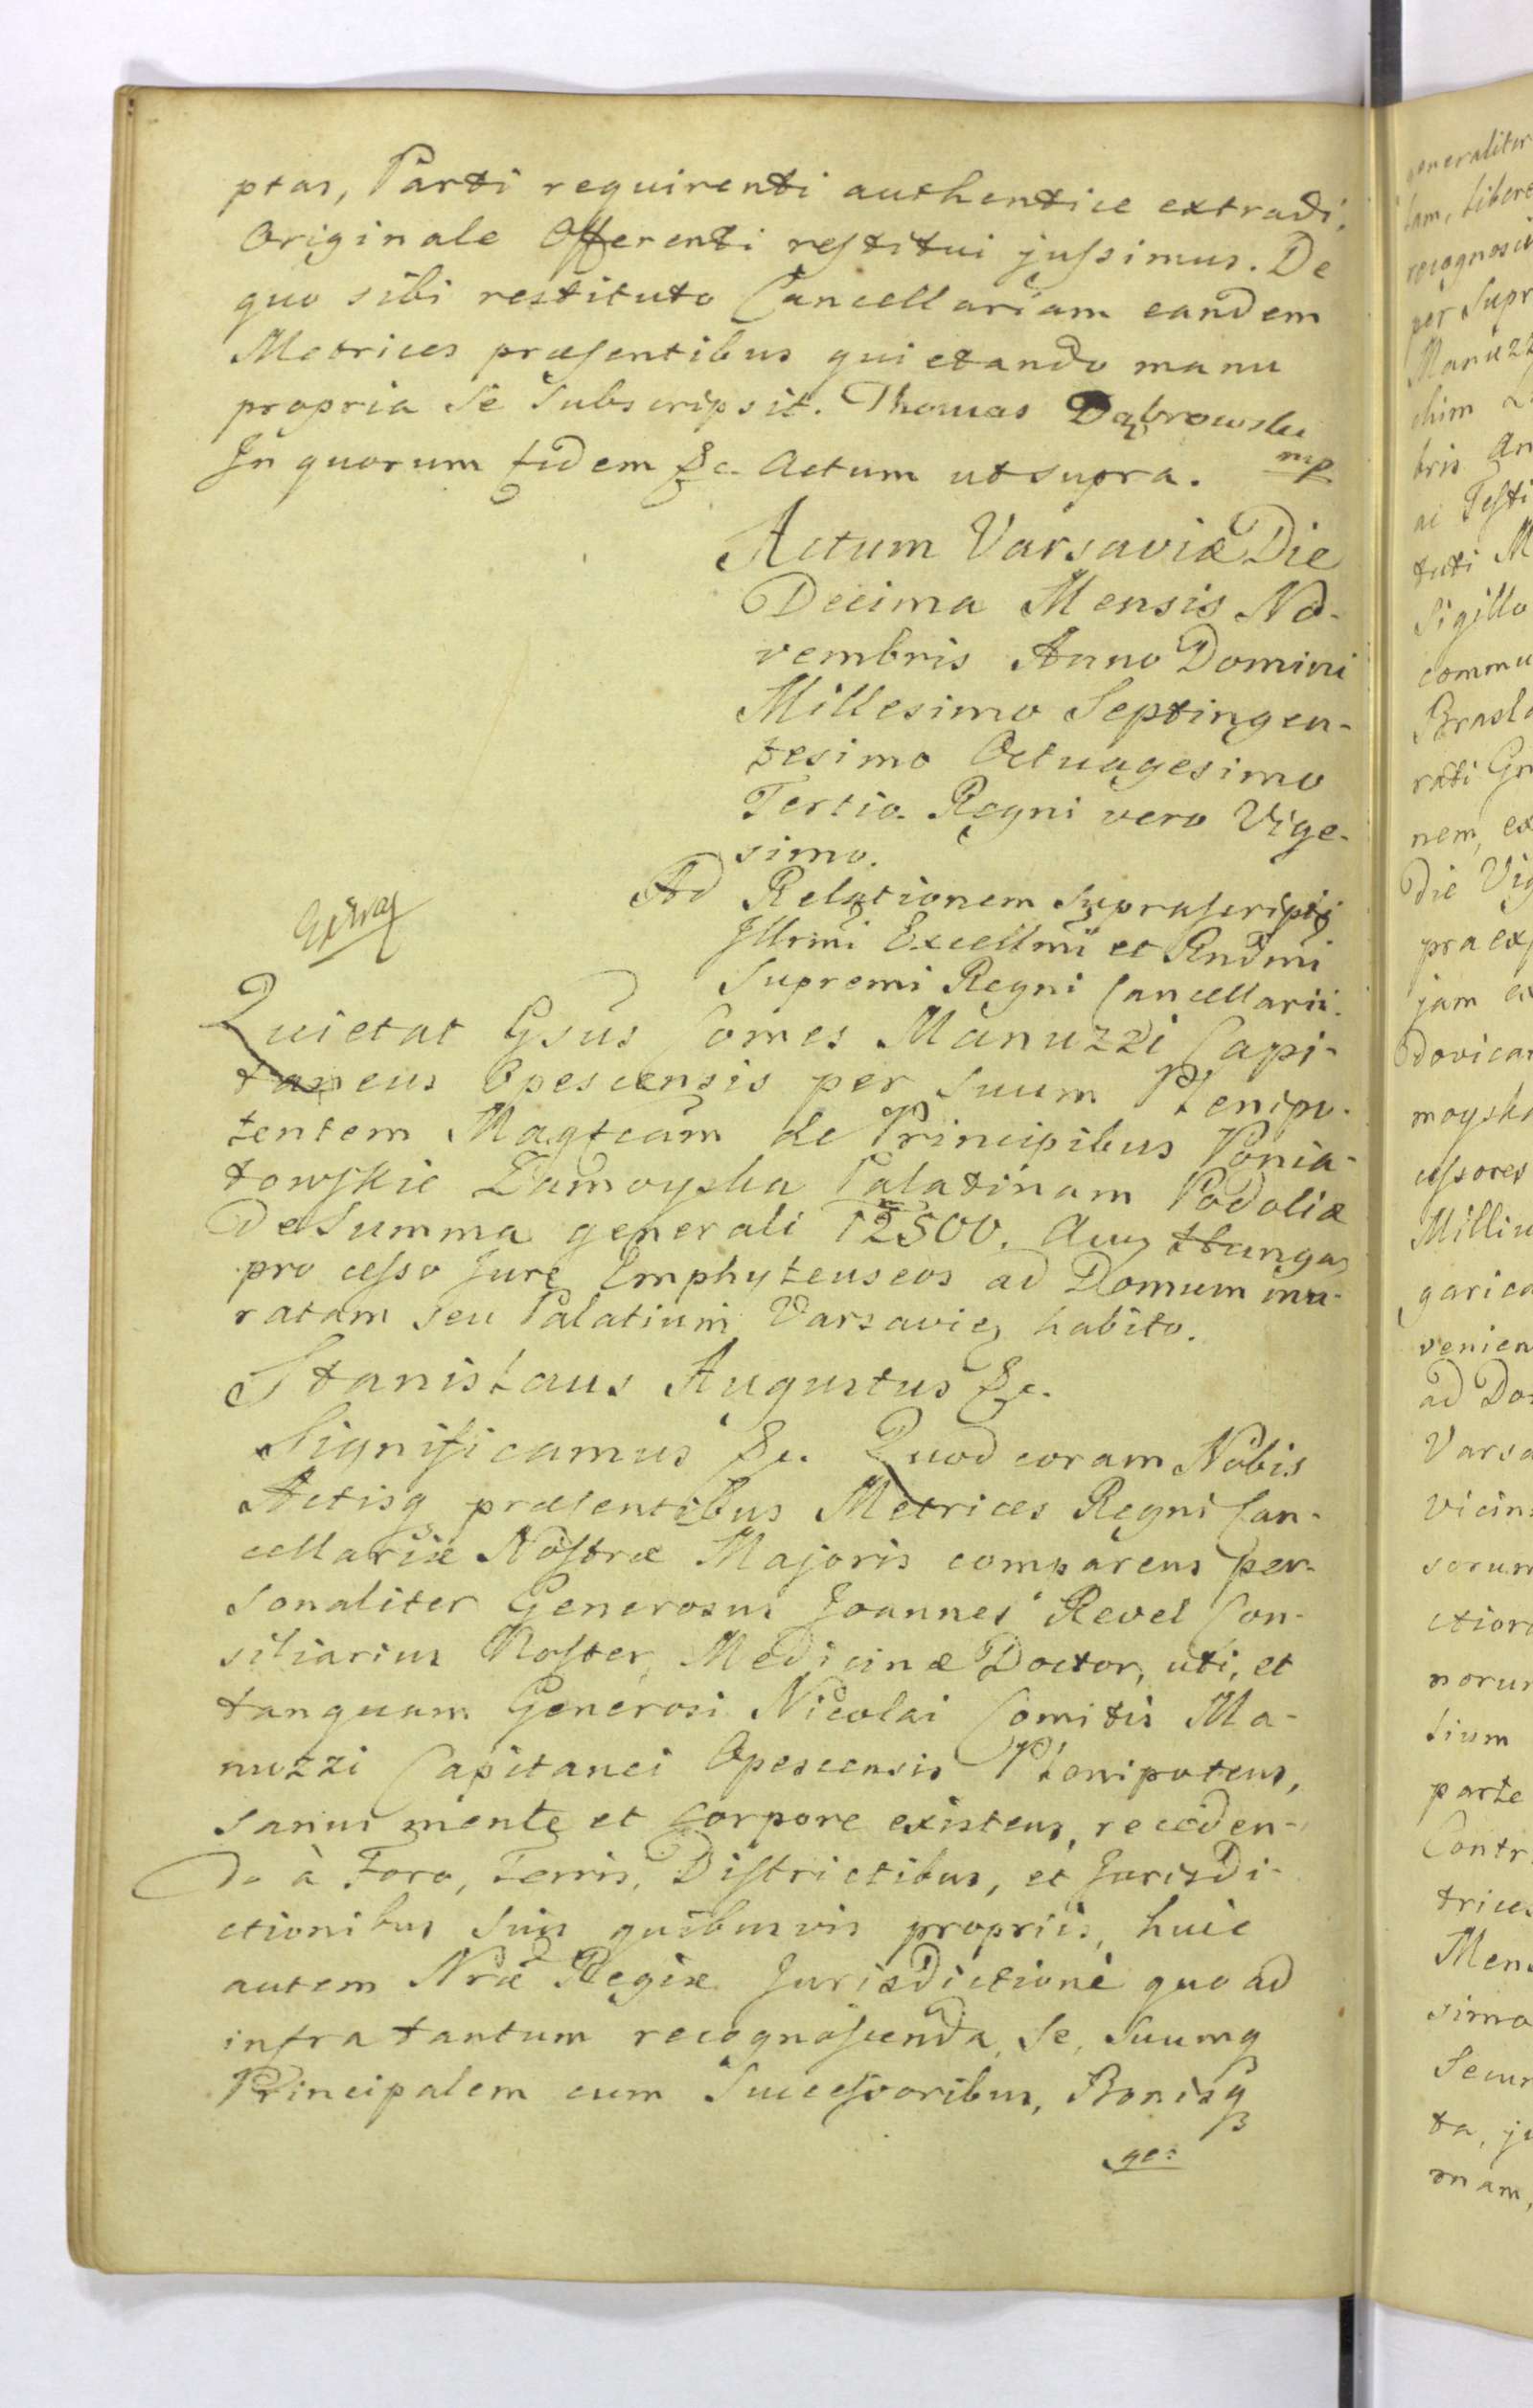 ptas, Parti requirenti authentice extradi,
Originale Offerenti restitui jussimus. De
quo sibi restituto Cancellariam eandem
Metrices præsentibus quietando manu
propria Se Subscripsit. Thomas Dąbrowski
mp
In quorum fidem &c. Actum ut supra.
Actum Varsaviæ Die
Decima Mensis No-
vembris Anno Domini
Millesimo Septingen-
tesimo Octuagesimo
Tertio. Regni vero Vige-
simo.
Ad Relationem Suprascripti
Illrmi Excellmi et Rndmi
Supremi Regni Cancellarii.
Quietat Gsus Comes Manuzzi Capi-
taneus Opescensis per suum Plenipo-
tentem Magtcam de Principibus Ponia-
towskie Zamoyska Palatinam Podoliæ
De Summa generali 12500. Aur Hungar
pro cesso Jure Emphyteuseos ad Domum mu-
ratam seu Palatium Varsaviæ habito.
Stanislaus Augustus &c.
Significamus &c. Quod coram Nobis
Actisq præsentibus Metrices Regni Can-
cellariæ Nostræ Majoris comparens per-
sonaliter Generosus Joannes Revel Con-
siliarius Noster, Medicinæ Doctor, uti, et
tanquam Generosi Nicolai Comitis Ma-
nuzzi Capitanei Opescensis Plenipotens,
sanus mente et Corpore existens, receden-
do à Foro, Terris, Districtibus, et Jurisdi-
ctionibus suis quibusvis propriis, huic
autem Nræ Regiæ Jurisdictioni quo ad
infra tantum recognoscenda, Se, Suumq
Principalem cum Successoribus, Bonisq
ge=
generaliter
lam, libere
recognosci
per Supr
Manuzz
chim
bris An
ac Testi
tuti M
Sigillo
commu
Brasla
rati Gr
nem, ex
Die Vig
præex
jam
dovicam
moysk
cessores
Milliu
garica
venien
ad Do
Varsa
vicin
sorum
ctiora
norum
tium
parte
Contr
trices
Mens
simo
Secun
ta, ju
onam,